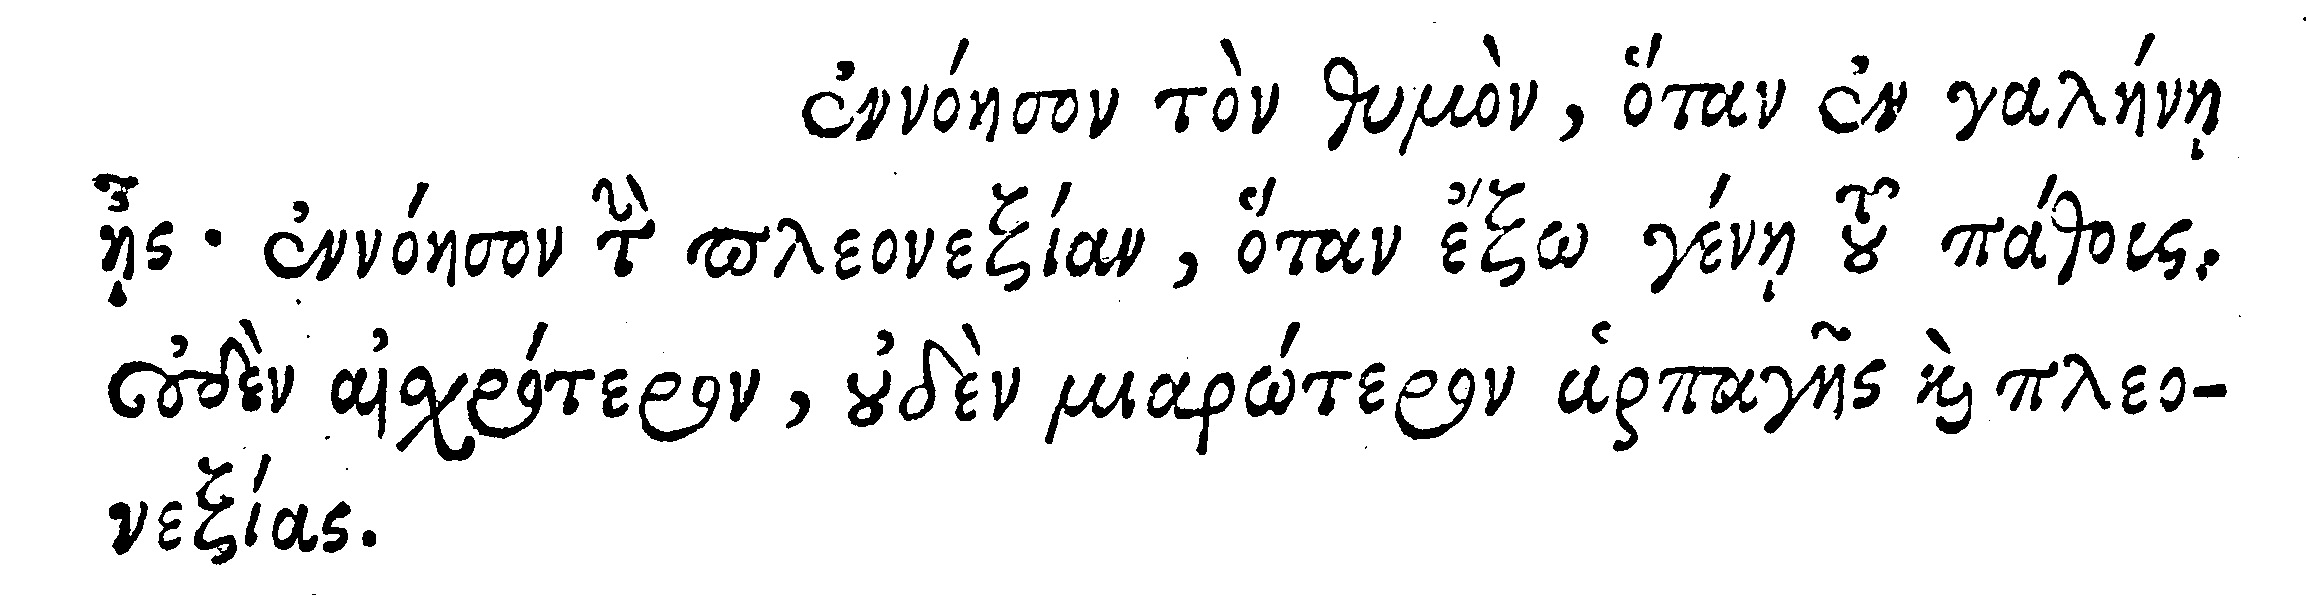 ἐννόησον τὸν θυμὸν, ὅταν ἐν γαλήνῃ
ᾖς· ἐννόησον τὴν πλεονεξίαν, ὅταν ἔξω γένῃ τοῦ πάθους.
οὐδὲν αἰσχρότερον, οὐδὲν μιαρώτερον ἁρπαγῆς καὶ πλεο-
νεξίας.